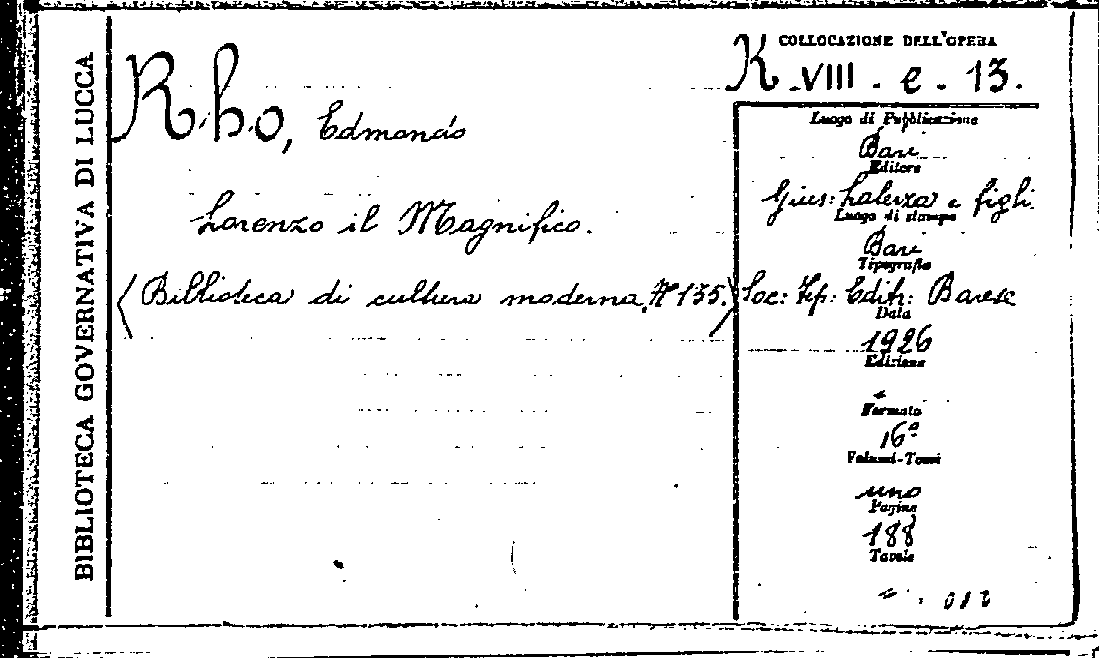 BIBLIOTECA GOVERNATIVA DI LUCCA
Rho, Edmondo
Lorenzo il Magnifico.
(Biblioteca di cultura moderna, N 135.)
COLLOCAZIONE DELL'OPERA
K. VIII. e. 13.
Luogo di Pubblicazione
Bari
Editore
Gius: Laterza e figli.
Luogo di stampa
Bari
Tipografia
Soc: Tip: Edit: Barese
Data
1926
Edizione
Formato
16º
Volumi-Tomi
uno
Pagine
188
Tavole